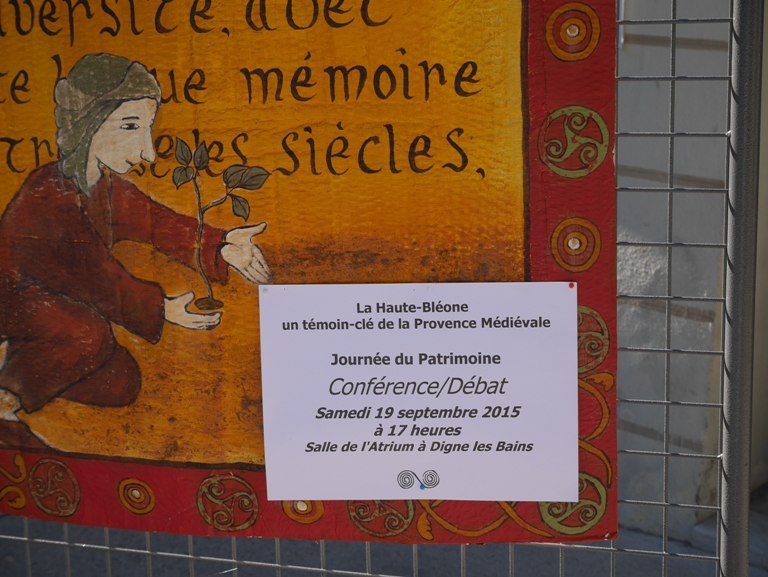 mémoire
siècles,
La Haute-Bléone
un témoin-clé de la Provence Médiévale
Journée du Patrimoine
Conférence/Débat
Samedi 19 septembre 2015
à 17 heures
Salle de l'Atrium à Digne les Bains